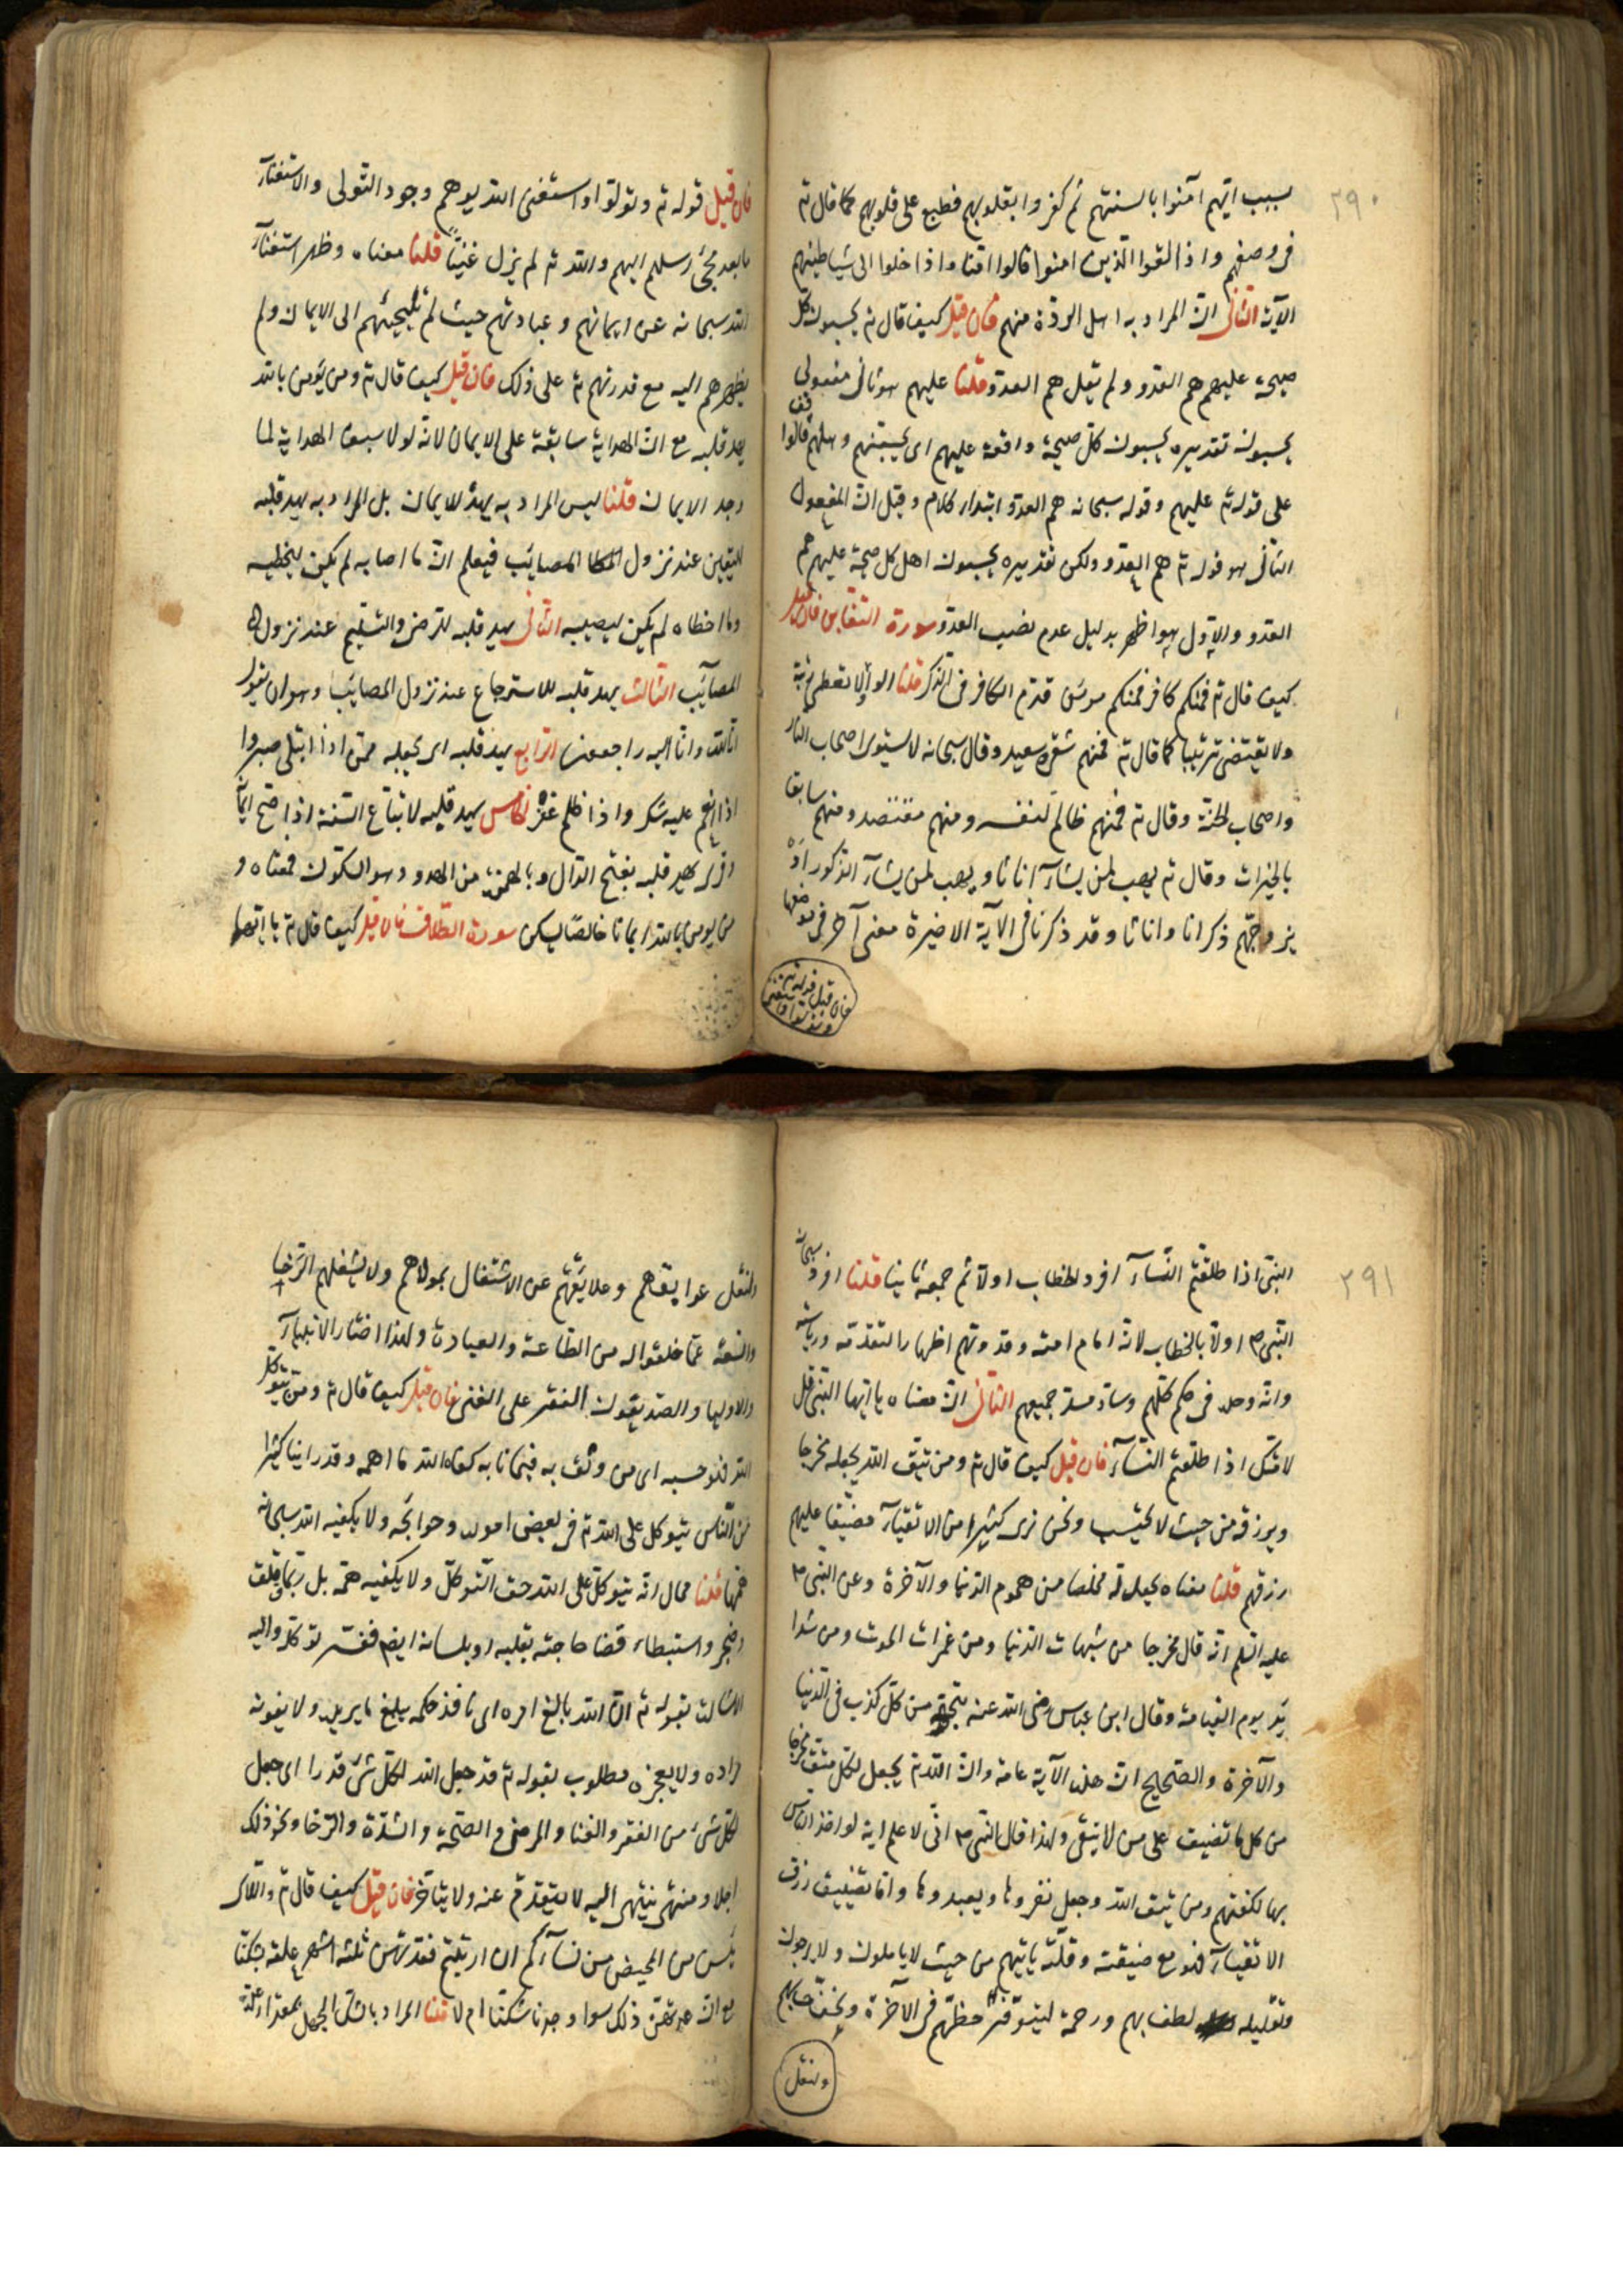 ٢٩٠
بسبب انهم آمنوا بالسنتهم ثم كفروا بقلوبهم فطبع على قلوبهم كما قال تع
فى وصفهم واذا لقوا الذين امنوا قالوا امنا واذا خلوا الى شياطينهم
الآية الثانى ان المراد به اهل الردة منهم فان قيل كيف قال تع يحسبون كل
صيحة عليهم هم العدو ولم يقل هم العدو قلنا عليهم هو ثانى مفعولى
يحسبون تقديره يحسبون كل صيحة واقعة عليهم اى لجبنهم وهلعهم فالوقف
على قوله تع عليهم وقوله سبحانه هم العدو ابتداء كلام وقيل ان المفعول
الثانى هو قوله تع هم العدو ولكن تقديره يحسبون اهل كل صيحة عليهم هم
العدو والاول هو اظهر بدليل عدم نصب العدو سورة التغابن فان قيل
كيف قال تع فمنكم كافر ومنكم مومن قدم الكافر فى الذكر قلنا الواو لا تعطى رتبة
ولا يقتضى ترتيبا كما قال تع فمنهم شقى وسعيد وقال سبحانه لا يستوى اصحاب النار
واصحاب الجنة وقال تع فمنهم ظالم لنفسه ومنهم مقتصد ومنهم سابق
بالخيرات وقال تع يهب لمن يشآء اناثا ويهب لمن يشآء الذكور او
يزوجهم ذكرانا واناثا وقد ذكرنا فى الآية الاخيرة معنى آخر فى موضعها
فان قيل قوله تع وتولوا واستغنى
فان قيل قوله تع وتولوا واستغنى الله يوهم وجود التولى والاستغنآء
ما بعد مجئ رسلهم اليهم والله تع لم يزل غنيا قلنا معناه وظهر استغنآء
الله سبحانه عن ايمانهم وعبادتهم حيث لم يلجئهم الى الايمان ولم
يظهرهم اليه مع قدرته تع على ذلك فان قيل كيف قال تع ومن يؤمن بالله
يهد قلبه مع ان الهداية سابقة على الايمان لانه لولا سبق الهداية لما
وجد الايمان قلنا ليس المراد به يهد للايمان بل المراد به يهد قلبه
لليقين عند نزول المصايب فيعلم ان ما اصابه لم يكن ليخطيه
وما اخطاه لم يكن ليصيبه الثانى يهد قلبه للرضى والتسليم عند نزول
المصآيب الثالث يهد قلبه للاسترجاع عند نزول المصايب وهو ان يقول
انا لله وانا اليه راجعون الرابع يهد قلبه اى يجعله ممن اذا ابتلى صبر و
اذا انعم عليه شكر واذا ظلم غفر الخامس يهد قلبه لاتباع السنة اذا صح ايمانه
وقرى يهد قلبه بفتح الدال وبالهمزة من الهدو وهو السكون فمعناه و
من يومن بالله ايمانا خالصا يسكن سورة الطلاق فان قيل كيف قال تع يا ايها
٢٩١
النبى اذا طلقتم النسآء افرد الخطاب اولا ثم جمع ثانيا قلنا افرد سبحانه
النبى ص اولا بالخطاب لانه امام امته وقدوتهم اظهارا لتقدمه ورياسته
وانه وحده فى حكم كلهم وساد مسد جميعهم الثانى ان معناه يا ايها النبى قل
لامتك اذا طلقتم النسآء فان قيل كيف قال تع ومن يتق الله يجعل له مخرجا
ويرزقه من حيث لا يحتسب ونحن نرى كثيرا من الاتقيآء مضيقا عليهم
رزقهم قلنا معناه يجعل له مخلصا من هموم الدنيا والآخرة وعن النبى ص
عليه السلم انه قال مخرجا من شبهات الدنيا ومن غمرات الموت ومن شدا
يد يوم القيامة وقال ابن عباس رضى الله عنه ينجيه من كل كرب فى الدنيا
والآخرة والصحيح ان هذه الآية عامة وان الله تع يجعل لكل متق مخرجا
من كل ما تضيق على من لا يتقى ولهذا قال النبى ص انى لاعلم اية لو اخذ الناس
بها لكفتهم ومن يتق الله وجعل يقروها ويعيدوها واما تضييق رزق
الاتقيآء فهو مع ضيقته وقلته ياتيهم من حيث لا ياملون ولا يرجون
وتقليله لطف بهم ورحمة ليتوفر حظهم فى الآخرة ويخف حسابهم
ولتقل
ولتقل عوايقهم وعلايقهم عن الاشتغال بمولاهم ولا يشغلهم الرخا
والسعة عما خلقوا له من الطاعة والعبادة ولهذا اختار الانبيآء
والاوليا والصديقون الفقر على الغنى فان قيل كيف قال تع ومن يتوكل
على الله فهو حسبه اى من وثق به فيما نابه كفاه الله ما اهمه وقد راينا كثيرا
من الناس يتوكل على الله تع فى بعض اموره وحوايجه ولا يكفيه الله سبحانه
همها قلنا محال انه يتوكل على الله حق التوكل ولا يكفيه همه بل ربما قلق
وضجر واستبطاء قضا حاجته بقلبه او بلسانه ايضا ففسد توكله واليه
الاشارة بقوله تع ان الله بالغ امره اى نافذ حكمه يبلغ ما يريد ولا يفوته
مراده ولا يعجزه مطلوب بقوله تع قد جعل الله لكل شئ قدرا اى جعل
لكل شئ من الفقر والغنا والمرض والصحة والشدة والرخا ونحو ذلك
اجلا ومنتهى ينتهى اليه لا يتقدم عنه ولا يتاخر فان قيل كيف قال تع واللآى
يئسن من المحيض من نسآئكم ان ارتبتم فعدتهن ثلثة اشهر علقه بشكنا
مع ان عدتهن ذلك سوا وجدنا شكنا ام لا قلنا المراد بالشك الجهل بمقدار عدة